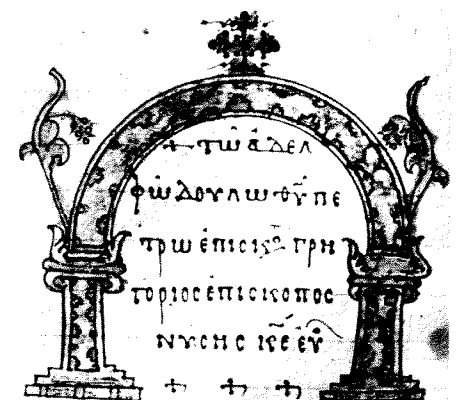 + τῶ ἀδελ
φῶ δούλω θῦ πε
τρω ἐπισκο γρη
γοριος ἐπισκοπος
νυσης
+ + +